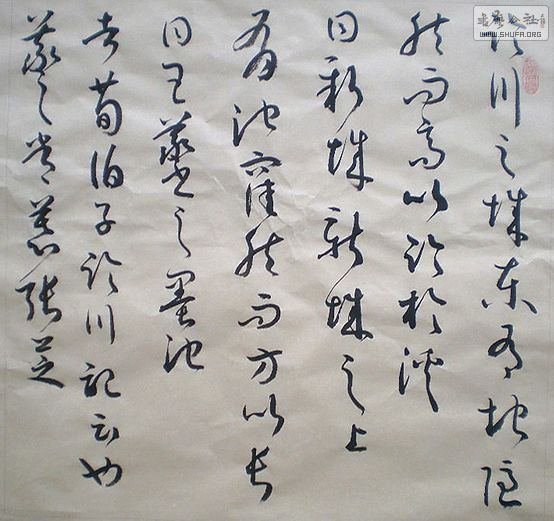 臨川之城東有地隱
然而高以臨於溪
曰新城新城之上
有池窪然而方以長
曰王羲之之墨池
者荀伯子臨川記云也
羲之嘗慕張芝
書藝公社
WWW.SHUFA.ORG